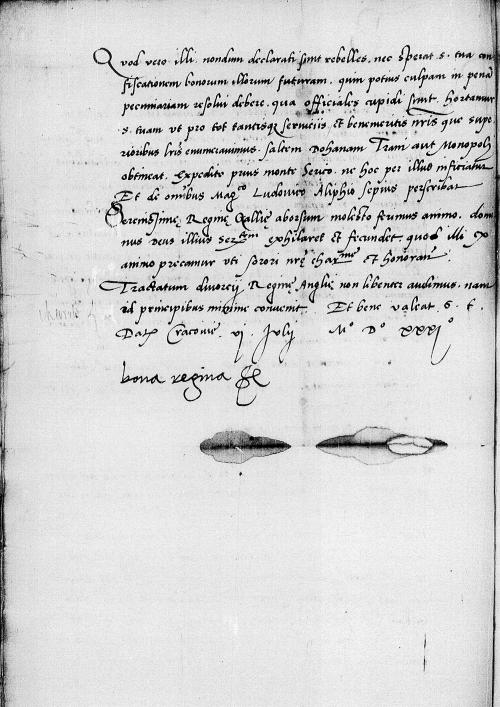 Quod vero illi nondum declarati sint rebelles, nec sperat s. tua con
fiscationem bonorum illorum futuram, quin potius culpam in penā
pecuniariam resolvi debere, qua officiales cupidi sint, hortamur
s. tuam ut pro tot tantisq servitiis et benemeritis nris que supe
rioribus lris enumeravimus, saltem Dohanam Trani aut Monopoli
obtineat. Expedito prius monte Serico, ne hoc per illud inficiatur
Et de omibus Mag.co Ludovico Aliphio sepius perscribat
Serenissimę Reginę Gallię aborsum molesto ferimus animo. domi
nus Deus illius Ser.tem exhilaret et fecundet. quod illi ex
animo precamur uti sorori nrę char.me et honoran.
Tractatum divorcij Reginę Anglię non libenter audimus. nam
id principibus minime convenit. Et bene valeat S. t.
Dat Cracovie. vj Julij M.o D.o XXXI.o
bona regina